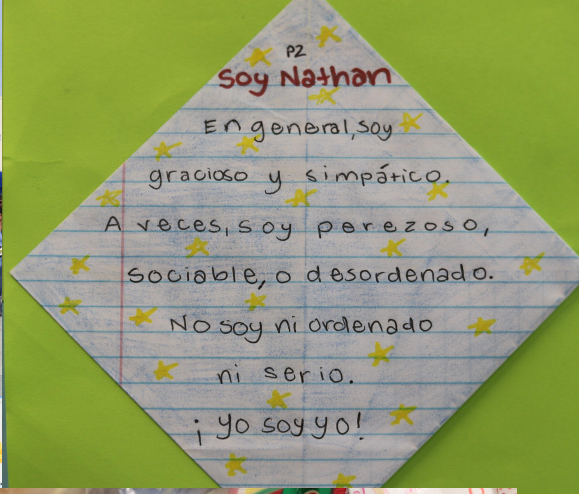 P2
Soy Nathan
En general, soy
gracioso y simpático.
A veces, soy perezoso,
sociable, o desordenado.
No soy ni ordenado
ni serio.
¡Yo soy yo!